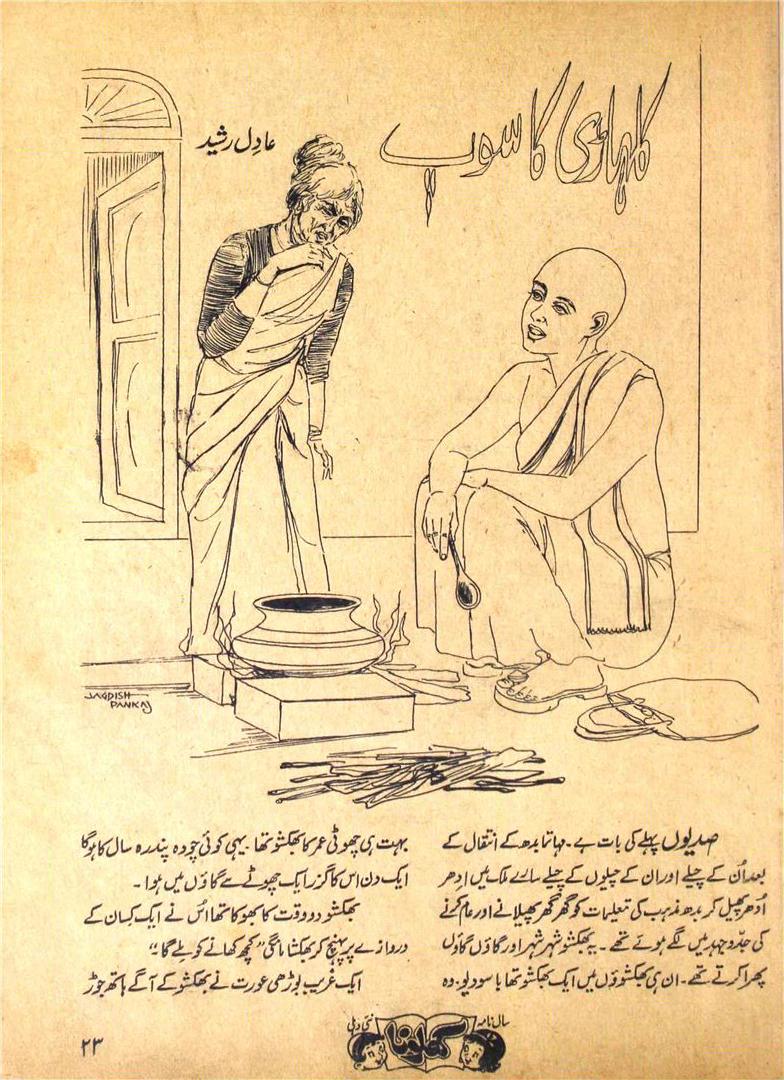 کلہاڑی کا سوپ
عادل رشید
JAGDISH
PANKAJ
صدیوں پہلے کی بات ہے۔ مہاتما بدھ کے انتقال کے
بعد اُن کے چیلے اور ان کے چیلوں کے چیلے سارے ملک میں اِدھر
اُدھر پھیل کر بدھ مذہب کی تعلیمات کو گھر گھر پھیلانے اور عام کرنے
کی جدّوجہد میں لگے ہوئے تھے۔ یہ بھکشو شہر شہر اور گاؤں گاؤں
پھرا کرتے تھے۔ ان ہی بھکشوؤں میں ایک بھکشو تھا باسودیو۔ وہ
بہت ہی چھوٹی عمر کا بھکشو تھا۔ یہی کوئی چودہ پندرہ سال کا ہوگا
ایک دن اس کا گزر ایک چھوٹے سے گاؤں میں ہوا۔
بھکشو دو وقت کا بھوکا تھا اُس نے ایک کسان کے
دروازے پر پہنچ کر بھکشا مانگی "کچھ کھانے کو ملے گا۔"
ایک غریب بوڑھی عورت نے بھکشو کے آگے ہاتھ جوڑ
سال نامہ کھلونا نئی دہلی
۲۳